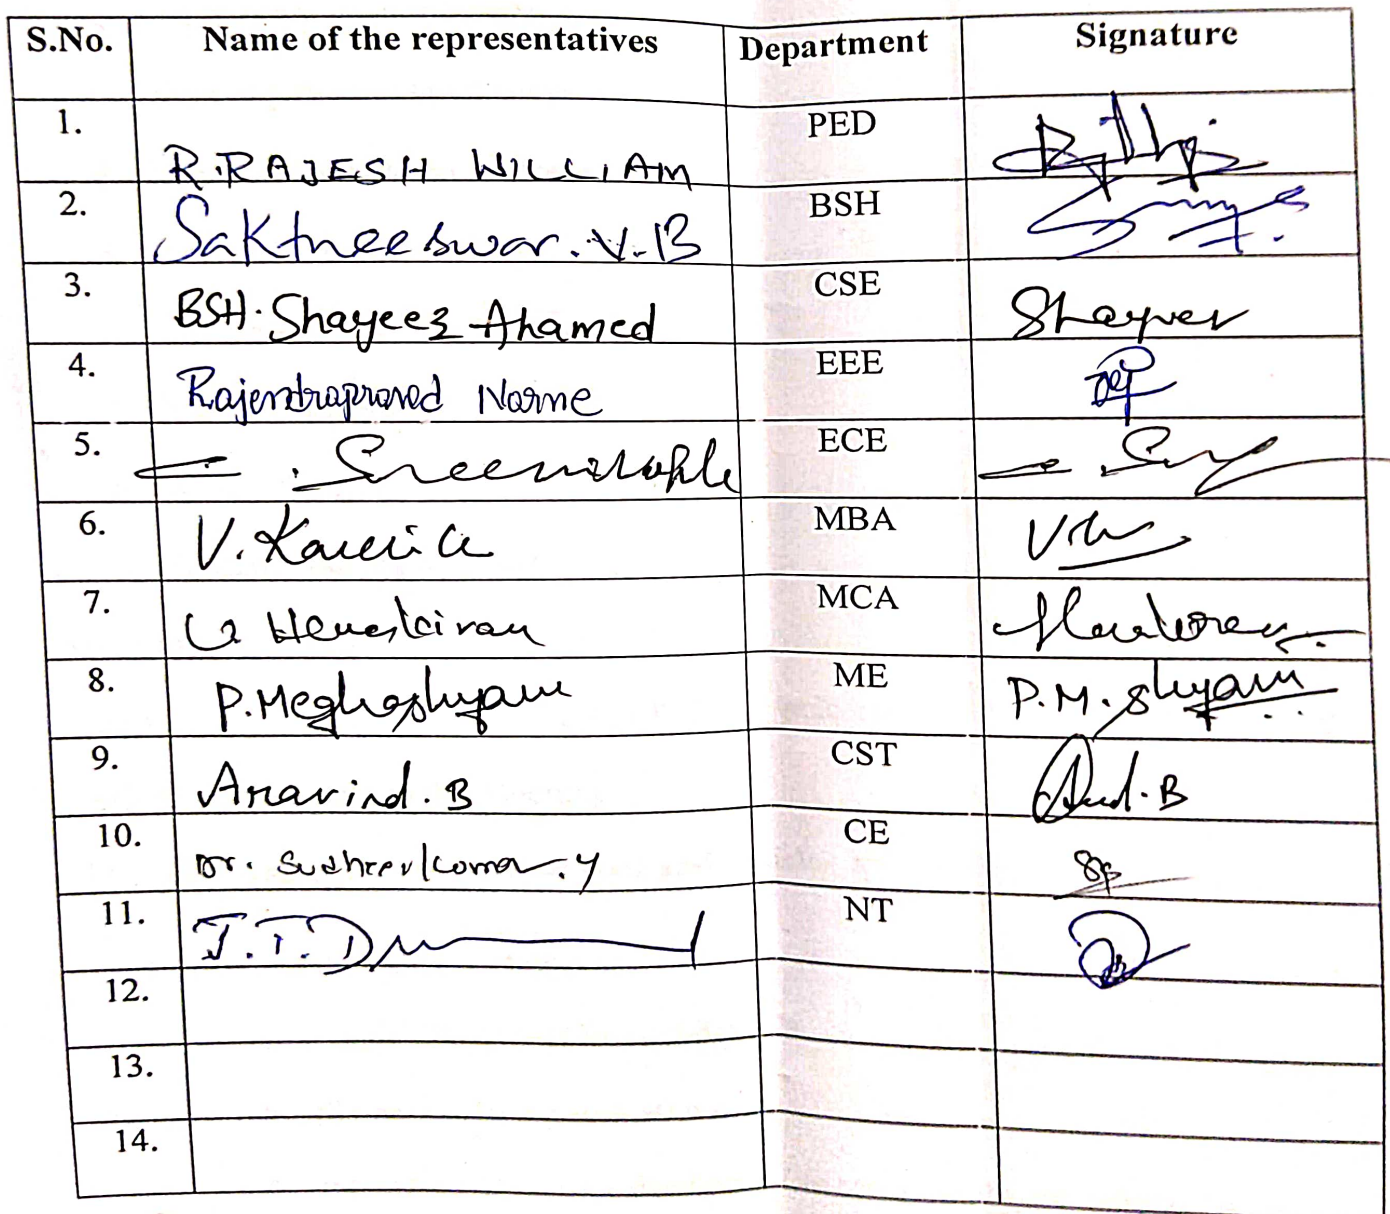 S.No. Name of the representatives Department Signature
1. R.RAJESH WILLIAM PED
2. Saktheeswar.V.B BSH
3. BSH.Shayeez Ahamed CSE Shayeez
4. Rajendraprasad Narne EEE
5. ECE
6. V. MBA
7. MCA
8. P.Meghashyam ME P.M.Shyam
9. Aravind.B CST
10. Dr. Sudheerkumar.Y CE
11. J.T. NT
12.
13.
14.